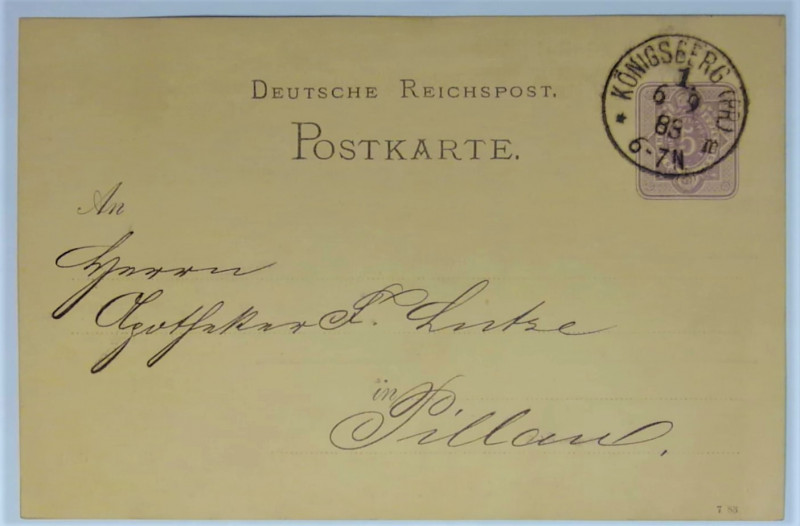 DEUTSCHE REICHSPOST.
POSTKARTE.
KÖNIGSBERG (PR.)
1.
6 9
88
6-7N. m
5
An
Herrn
Apotheker F. Lutze
in Pillau.
7 85